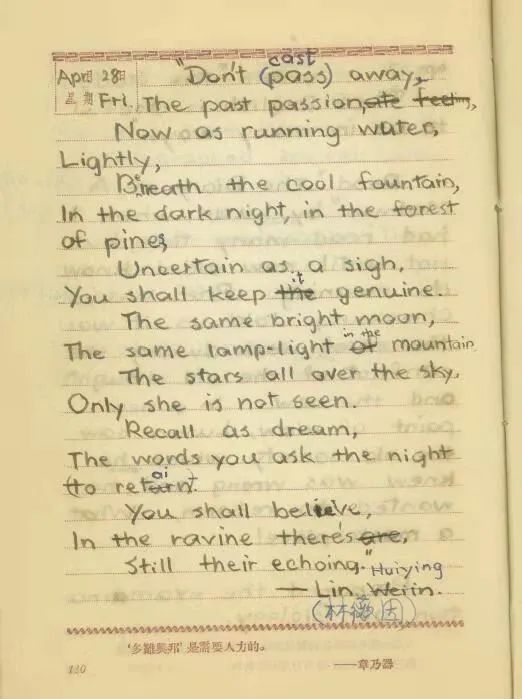 Apr月 28日
星期 Fri.
cast
"Don't (pass) away,
The past passion,ate feeling,
Now as running water,
Lightly,
Beneath the cool fountain,
In the dark night, in the forest
of pines,
Uncertain as a sigh,
it
You shall keep the genuine.
The same bright moon,
in the
The same lamp-light of mountain
The stars all over the sky,
Only she is not seen.
Recall as dream,
The words you ask the night
ai
(to return).
You shall believe,
In the ravine there's are,
Still their echoing."
Huiying
— Lin Weiin.
(林徽因)
'多難興邦' 是需要人力的。
——章乃器
120